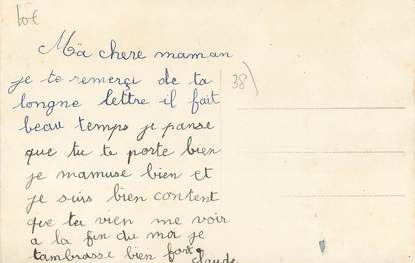 38)
Mà chere maman
je te remerçi de ta
longne lettre il fait
beau temps je panse
que tu te porte bien
je mamuse bien et
je suis bien content
que tu vien me voir
a la fin du moi je
tambrasse bien fort
claude